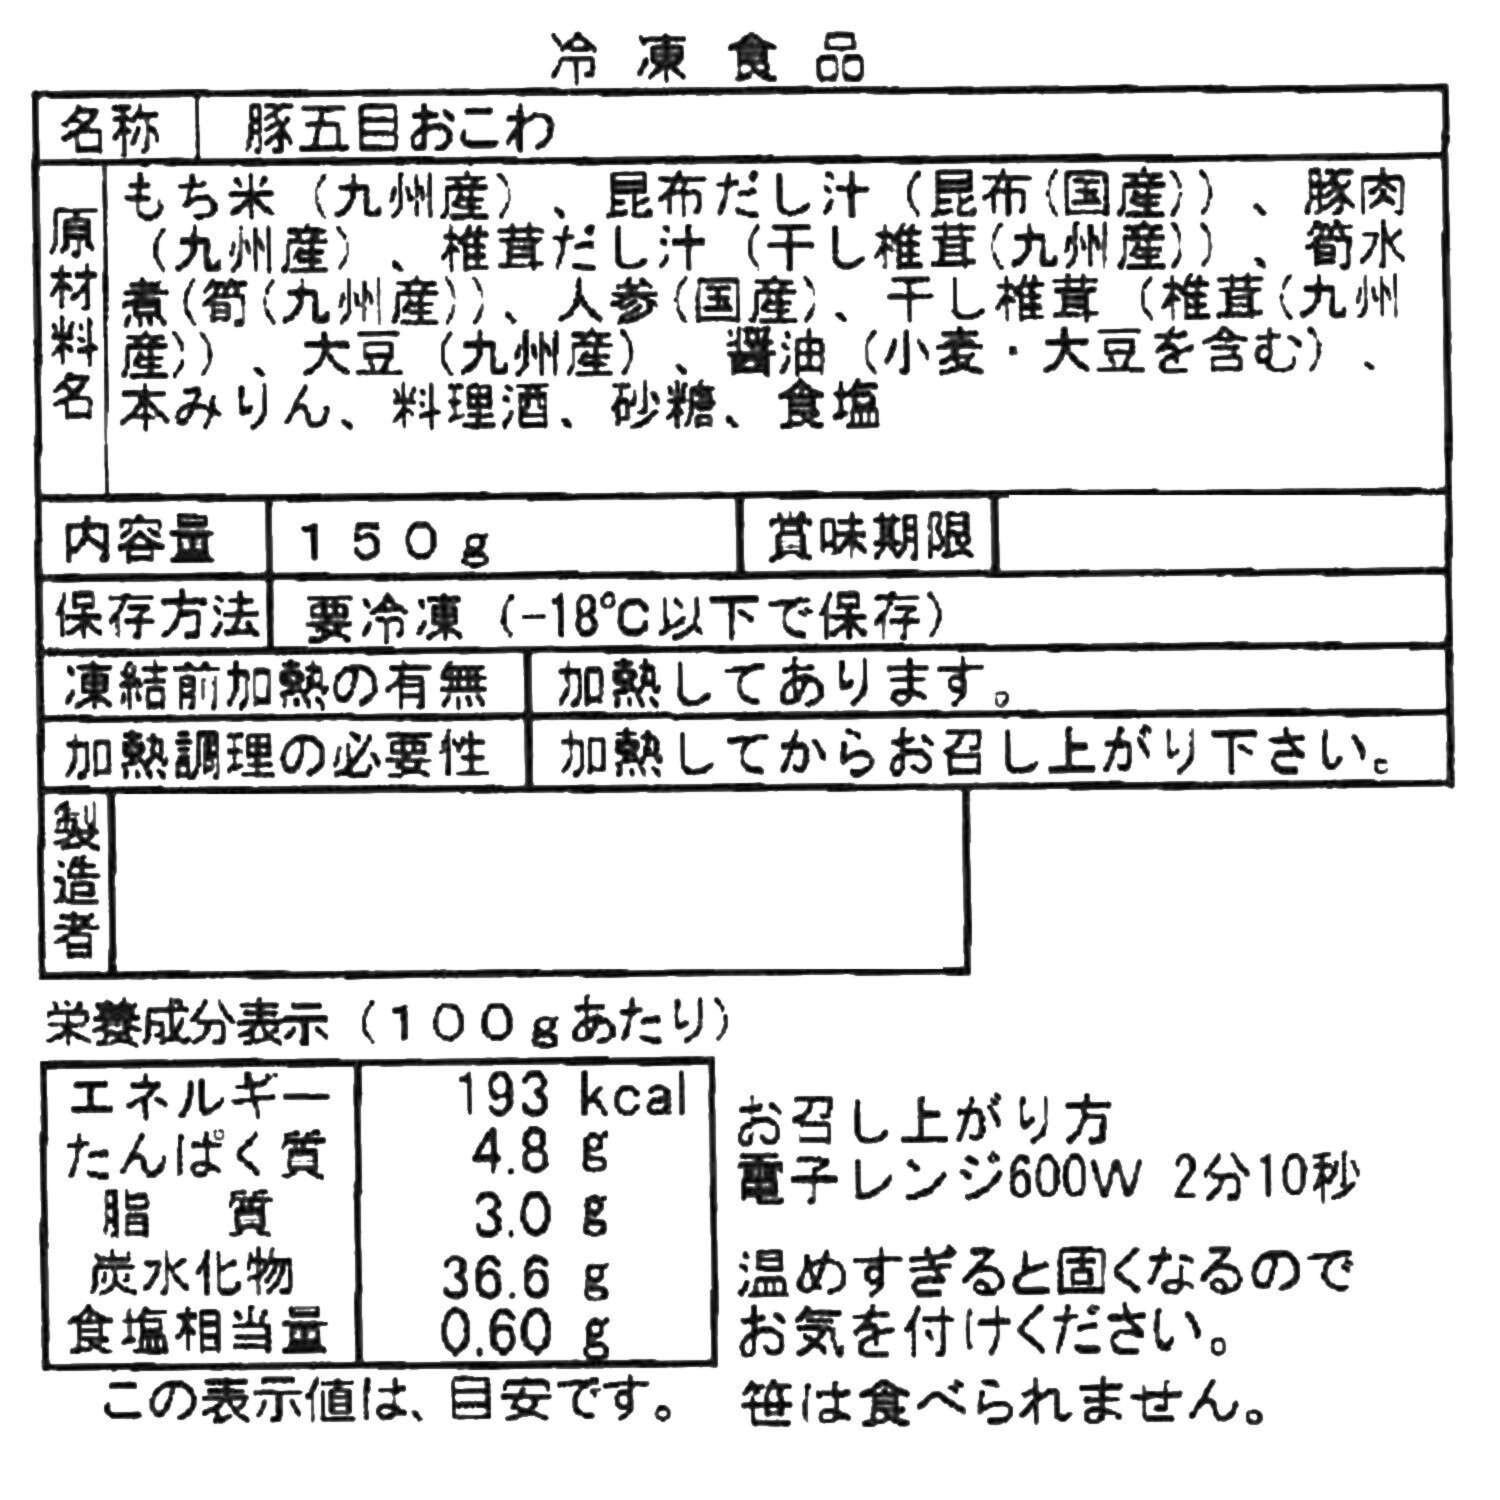 冷凍食品
名称 豚五目おこわ
原材料名
もち米（九州産）、昆布だし汁（昆布(国産)）、豚肉
（九州産）、椎茸だし汁（干し椎茸(九州産)）、筍水
煮(筍(九州産))、人参(国産)、干し椎茸（椎茸(九州
産)）、大豆（九州産）、醤油（小麦・大豆を含む）、
本みりん、料理酒、砂糖、食塩
内容量 １５０ｇ 賞味期限
保存方法 要冷凍（-18℃以下で保存）
凍結前加熱の有無 加熱してあります。
加熱調理の必要性 加熱してからお召し上がり下さい。
製造者
栄養成分表示（１００ｇあたり）
エネルギー 193 kcal
たんぱく質 4.8 g
脂質 3.0 g
炭水化物 36.6 g
食塩相当量 0.60 g
この表示値は、目安です。
お召し上がり方
電子レンジ600W 2分10秒
温めすぎると固くなるので
お気を付けください。
笹は食べられません。